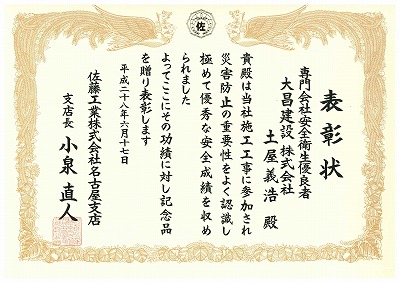 佐
表彰状
専門会社安全衛生優良者
大昌建設株式会社
土屋義浩殿
貴殿は当社施工工事に参加され
災害防止の重要性をよく認識し
極めて優秀な安全成績を収め
られました
よってここにその功績に対し記念品
を贈り表彰します
平成二十八年六月十七日
佐藤工業株式会社名古屋支店
支店長 小泉直人